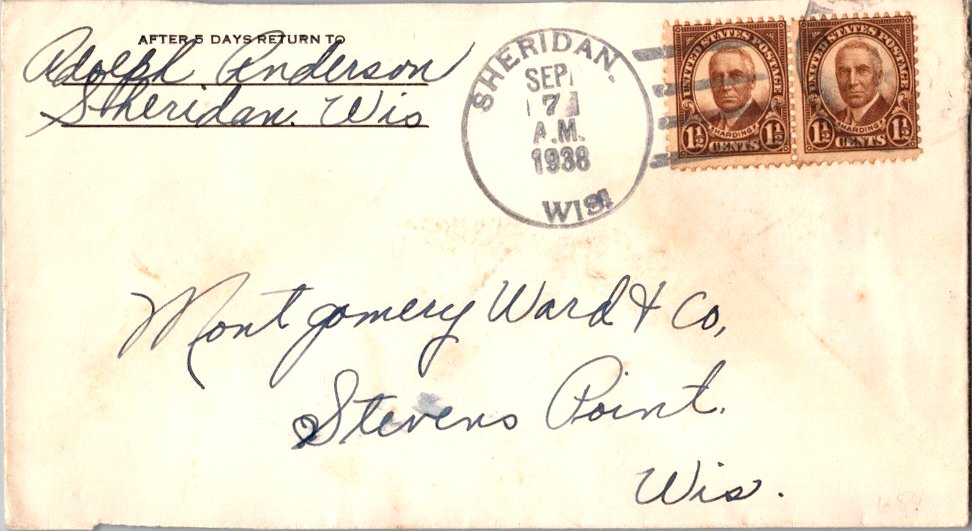 AFTER 5 DAYS RETURN TO
Adolph Anderson
Sheridan. Wis
SHERIDAN.
SEP
7
A.M.
1938
WIS.
UNITED STATES POSTAGE
HARDING
1½ CENTS 1½
UNITED STATES POSTAGE
HARDING
1½ CENTS 1½
Montgomery Ward & Co,
Stevens Point.
Wis.